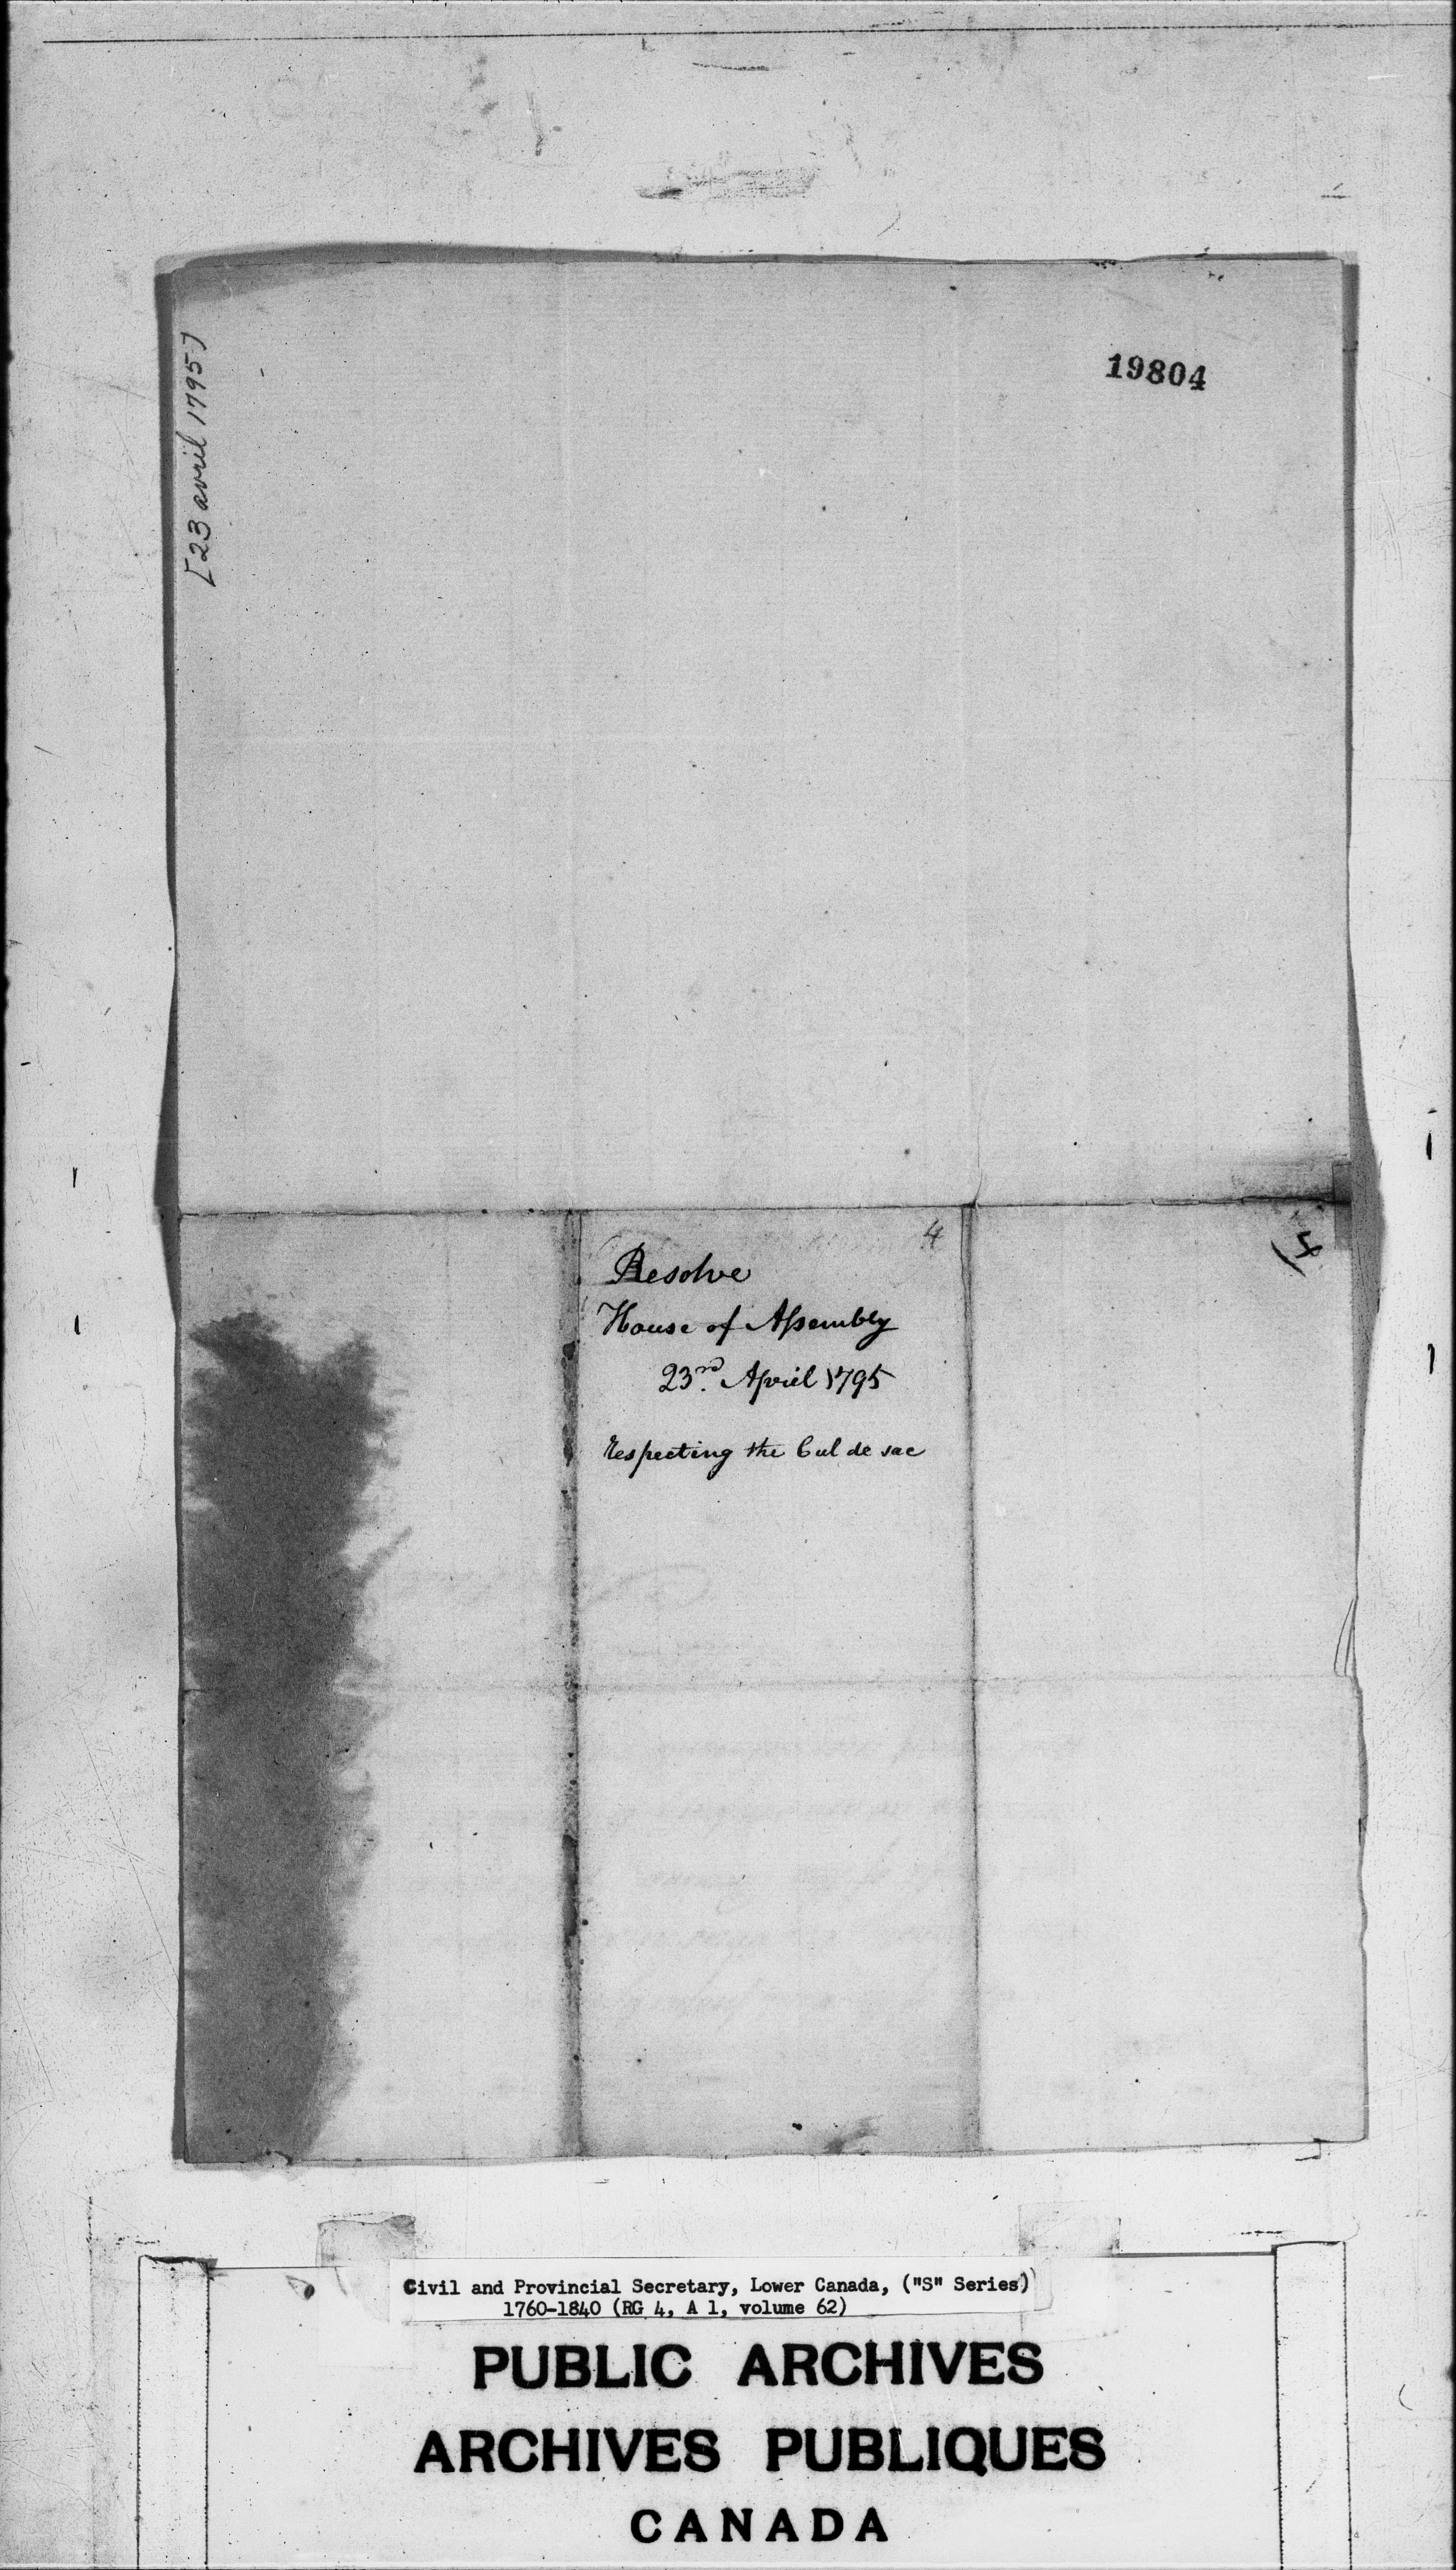 [23 avril 1795]
19804
4
Resolve
House of Assembly
23rd. April 1795
respecting the Cul de sac
4)
Civil and Provincial Secretary, Lower Canada, ("S" Series)
1760-1840 (RG 4, A 1, volume 62)
PUBLIC ARCHIVES
ARCHIVES PUBLIQUES
CANADA